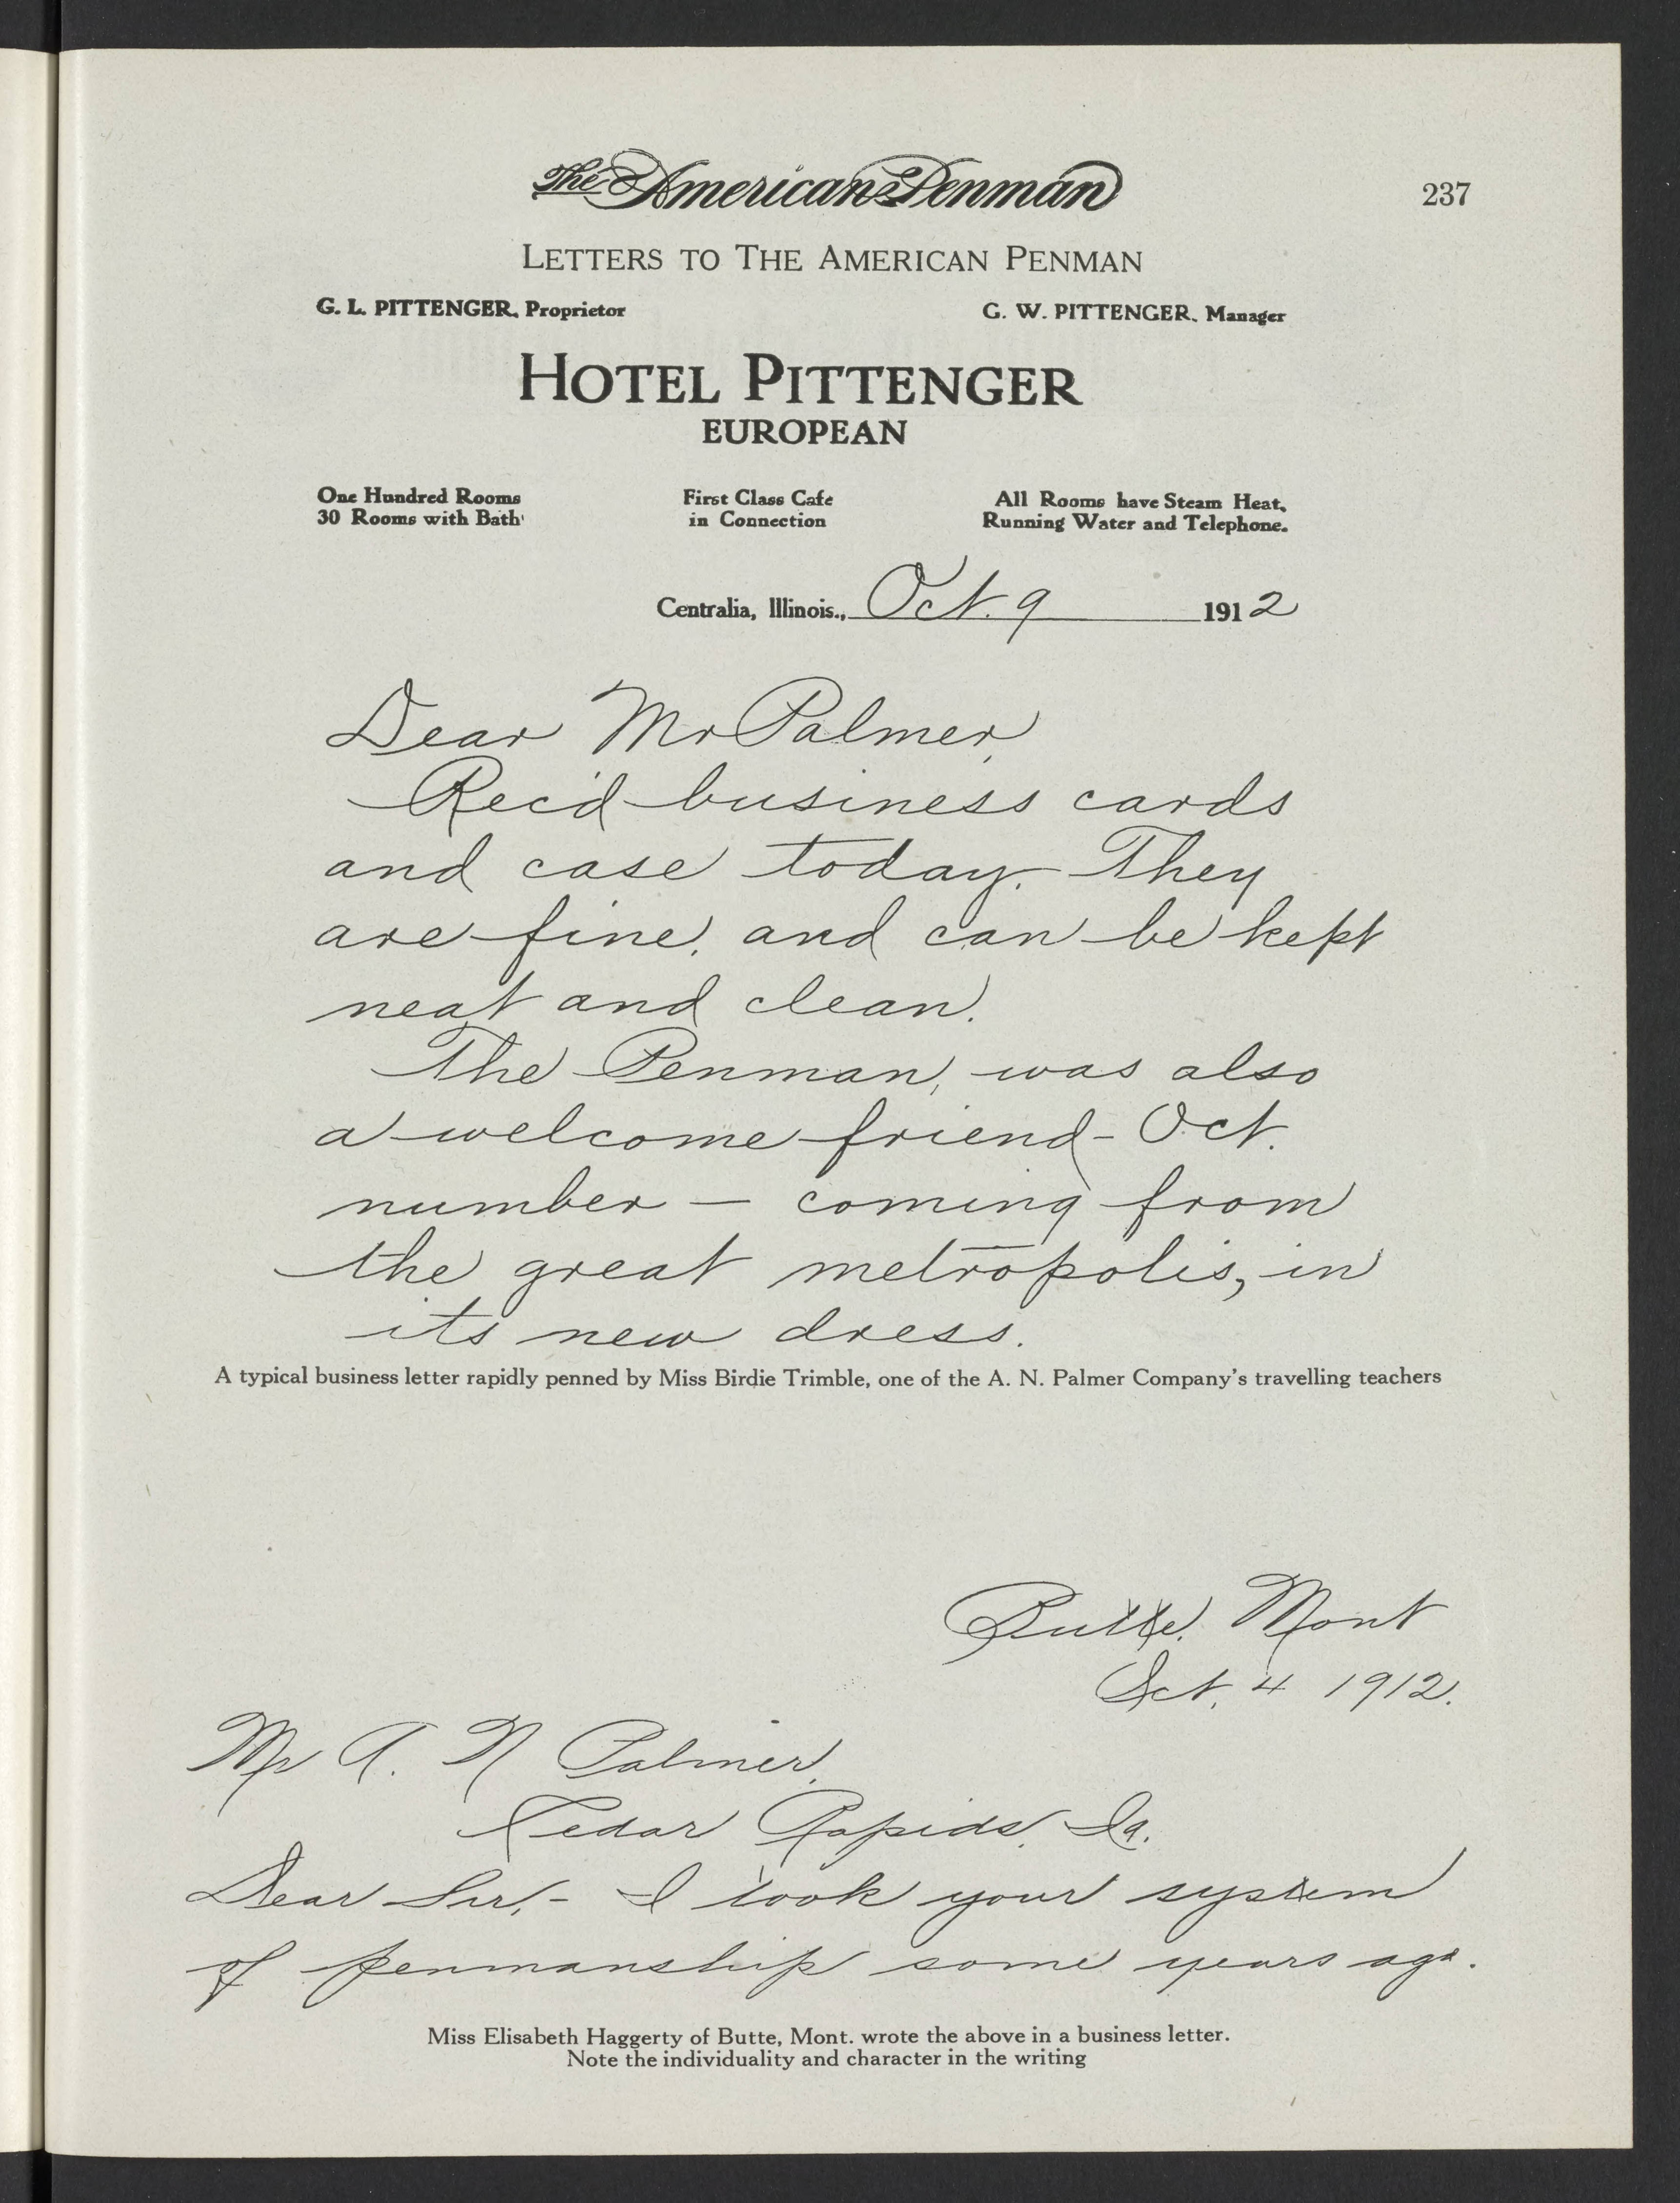 The American Penman
237
LETTERS TO THE AMERICAN PENMAN
G. L. PITTENGER, Proprietor
G. W. PITTENGER, Manager
HOTEL PITTENGER
EUROPEAN
One Hundred Rooms
30 Rooms with Bath
First Class Cafe
in Connection
All Rooms have Steam Heat,
Running Water and Telephone.
Centralia, Illinois., Oct. 9 1912
Dear Mr Palmer,
Rec'd business cards
and case today. They
are fine, and can be kept
neat and clean.
The Penman, was also
a welcome friend - Oct.
number — coming from
the great metropolis, in
its new dress.
A typical business letter rapidly penned by Miss Birdie Trimble, one of the A. N. Palmer Company's travelling teachers
Butte, Mont
Oct. 4 1912.
Mr A. N Palmer,
Cedar Rapids, Ia.
Dear Sir,- I took your system
of penmanship some years ago.
Miss Elisabeth Haggerty of Butte, Mont. wrote the above in a business letter.
Note the individuality and character in the writing